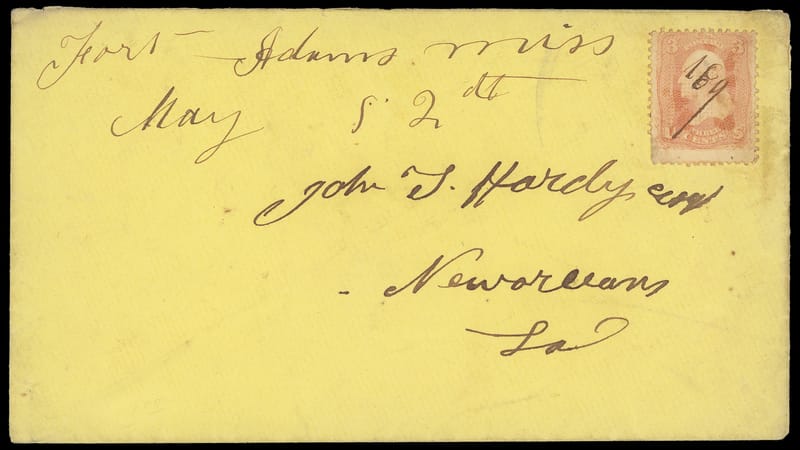 Fort Adams miss
May 2 dt
John T. Hardy esqr
Neworleans
La
3 3
THREE
CENTS